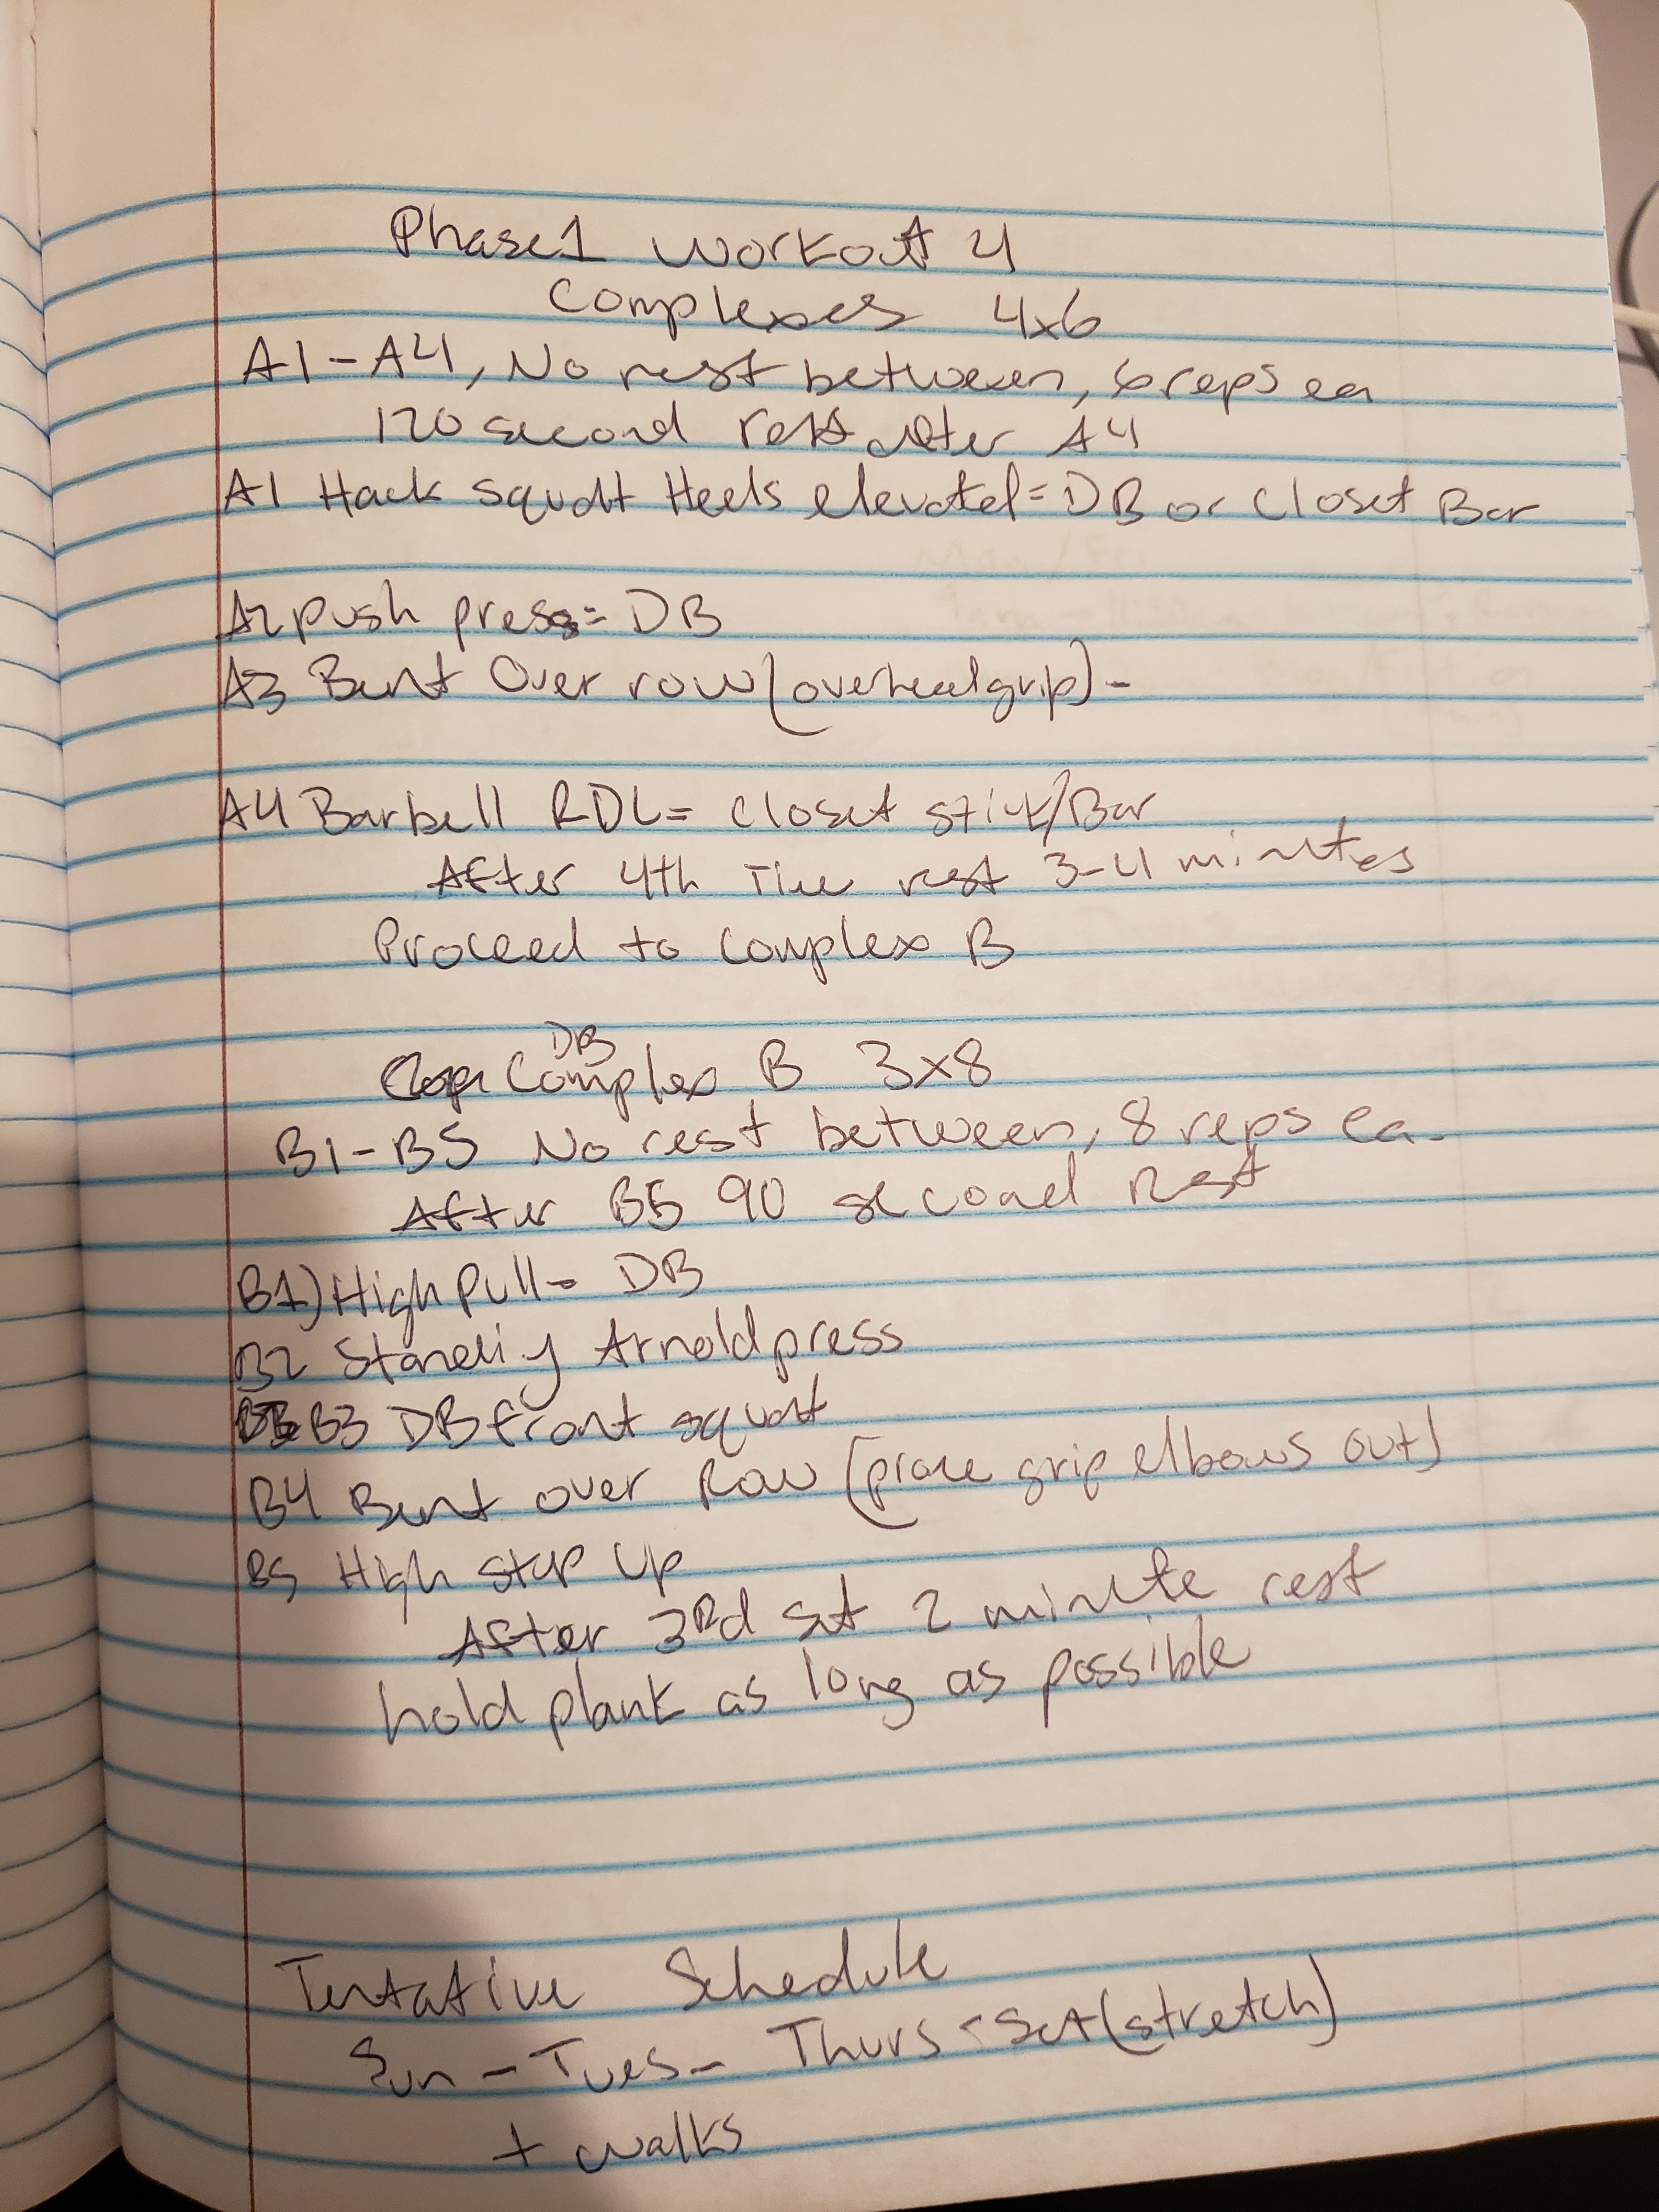 Phase 1 workout 4
Complexes 4x6
A1-A4, No rest between, 6 reps ea
120 second rest after A4
A1 Hack squat Heels elevated= DB or Closet Bar
A2 push press= DB
A3 Bent Over row (overhead grip) -
A4 Barbell RDL= Closet stick/Bar
After 4th Time rest 3-4 minutes
Proceed to complex B
DB
Complex B 3x8
B1-B5 No rest between, 8 reps ea.
After B5 90 second Rest
B1) High Pull= DB
B2 Standing Arnold press
B3 DB front squat
B4 Bent over Row (prone grip elbows out)
B5 High step up
After 3Rd set 2 minute rest
hold plank as long as possible
Tentative Schedule
Sun - Tues - Thurs - Sat (stretch)
+ walks